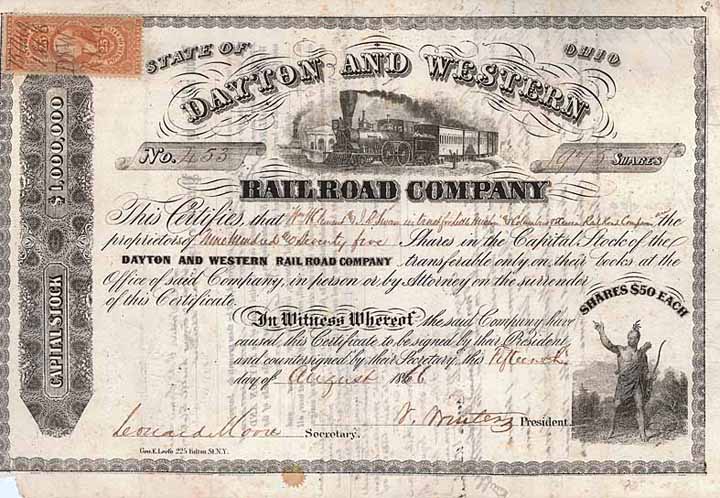 STATE OF OHIO
DAYTON AND WESTERN
No. 453
975 SHARES
RAILROAD COMPANY
This Certifies, that in trust for the
proprietors of Nine hundred & Seventy five Shares in the Capital Stock of the
DAYTON AND WESTERN RAIL ROAD COMPANY transferable only on their books at the
Office of said Company, in person or by Attorney on the surrender
of this Certificate.
SHARES $50 EACH
In Witness Whereof the said Company have
caused this Certificate to be signed by their President
and countersigned by their Secretary, this fifteenth
day of August 1866
Leonard Moore Secretary.
V. Winters President.
Geo. E. Leefe 225 Fulton St. N.Y.
$1,000,000
CAPITAL STOCK
25